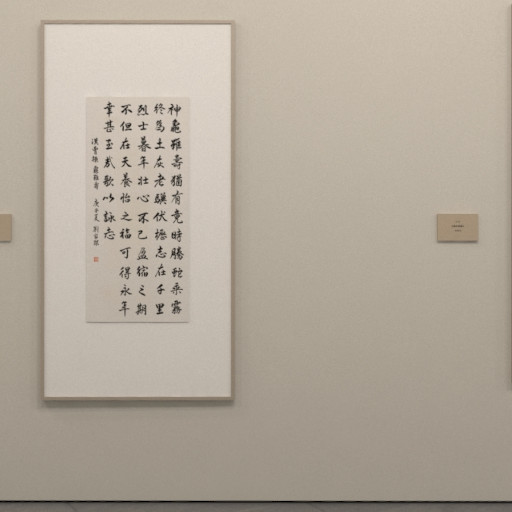 神龜雖壽猶有竟時騰蛇乘霧
終為土灰老驥伏櫪志在千里
烈士暮年壯心不已盈縮之期
不但在天養怡之福可得永年
幸甚至哉歌以詠志
漢曹操龜雖壽